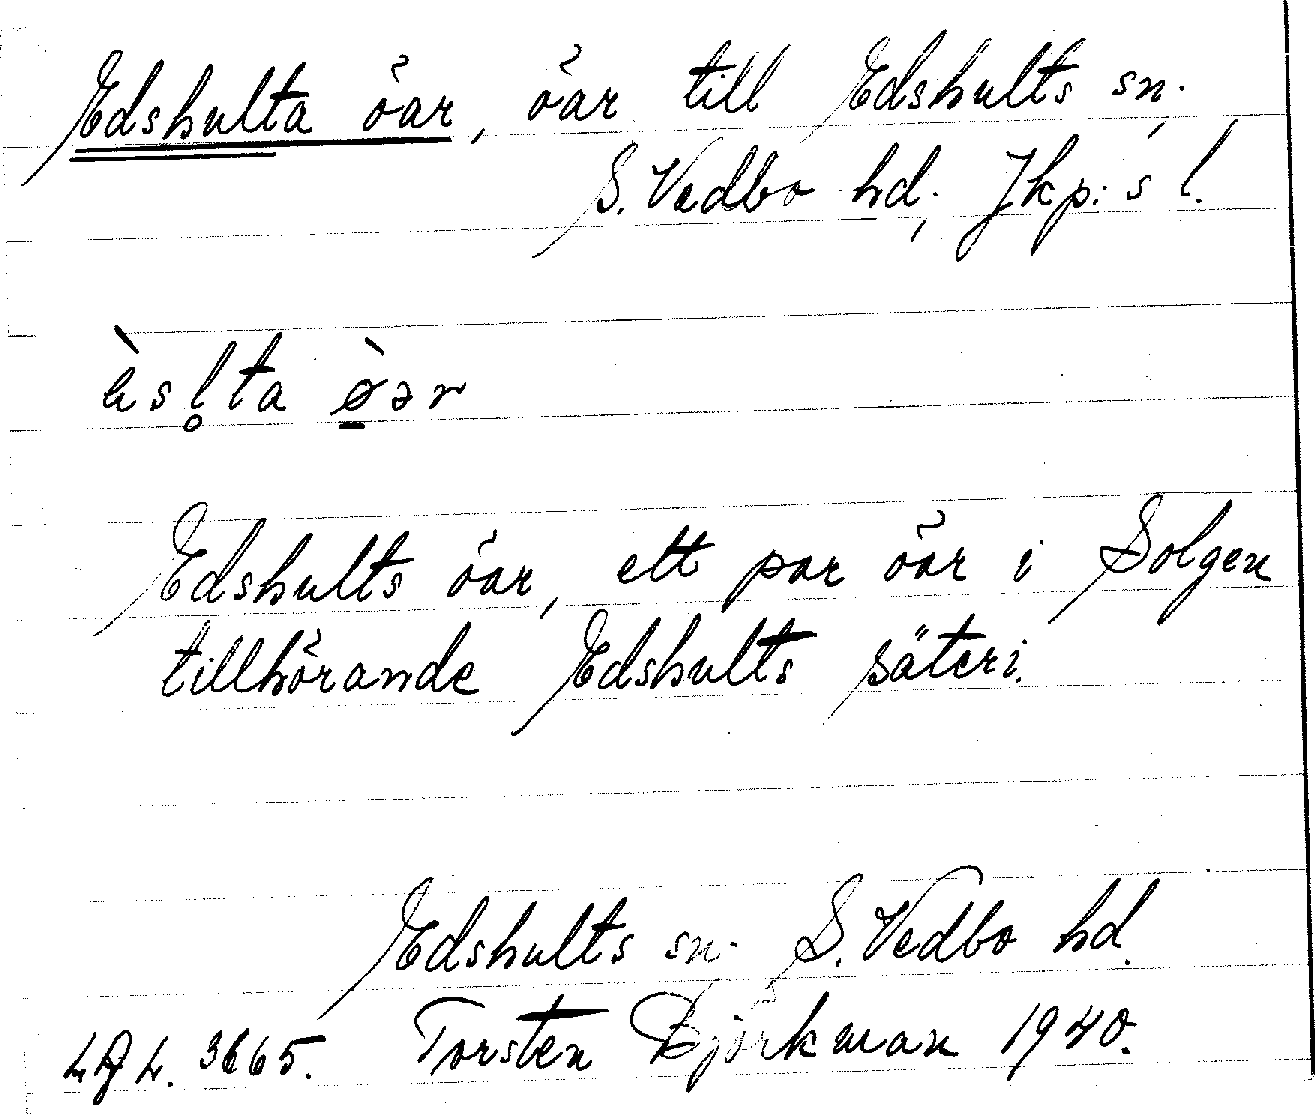 Edshulta öar, öar till Edshults sn.,
S. Vedbo hd., Jkp:s l.
èsl̥ta ø̠̀ər
Edshults öar, ett par öar i Solgen
tillhörande Edshults säteri.
Edshults sn. S. Vedbo hd.
3665. Torsten Björkman 1940.